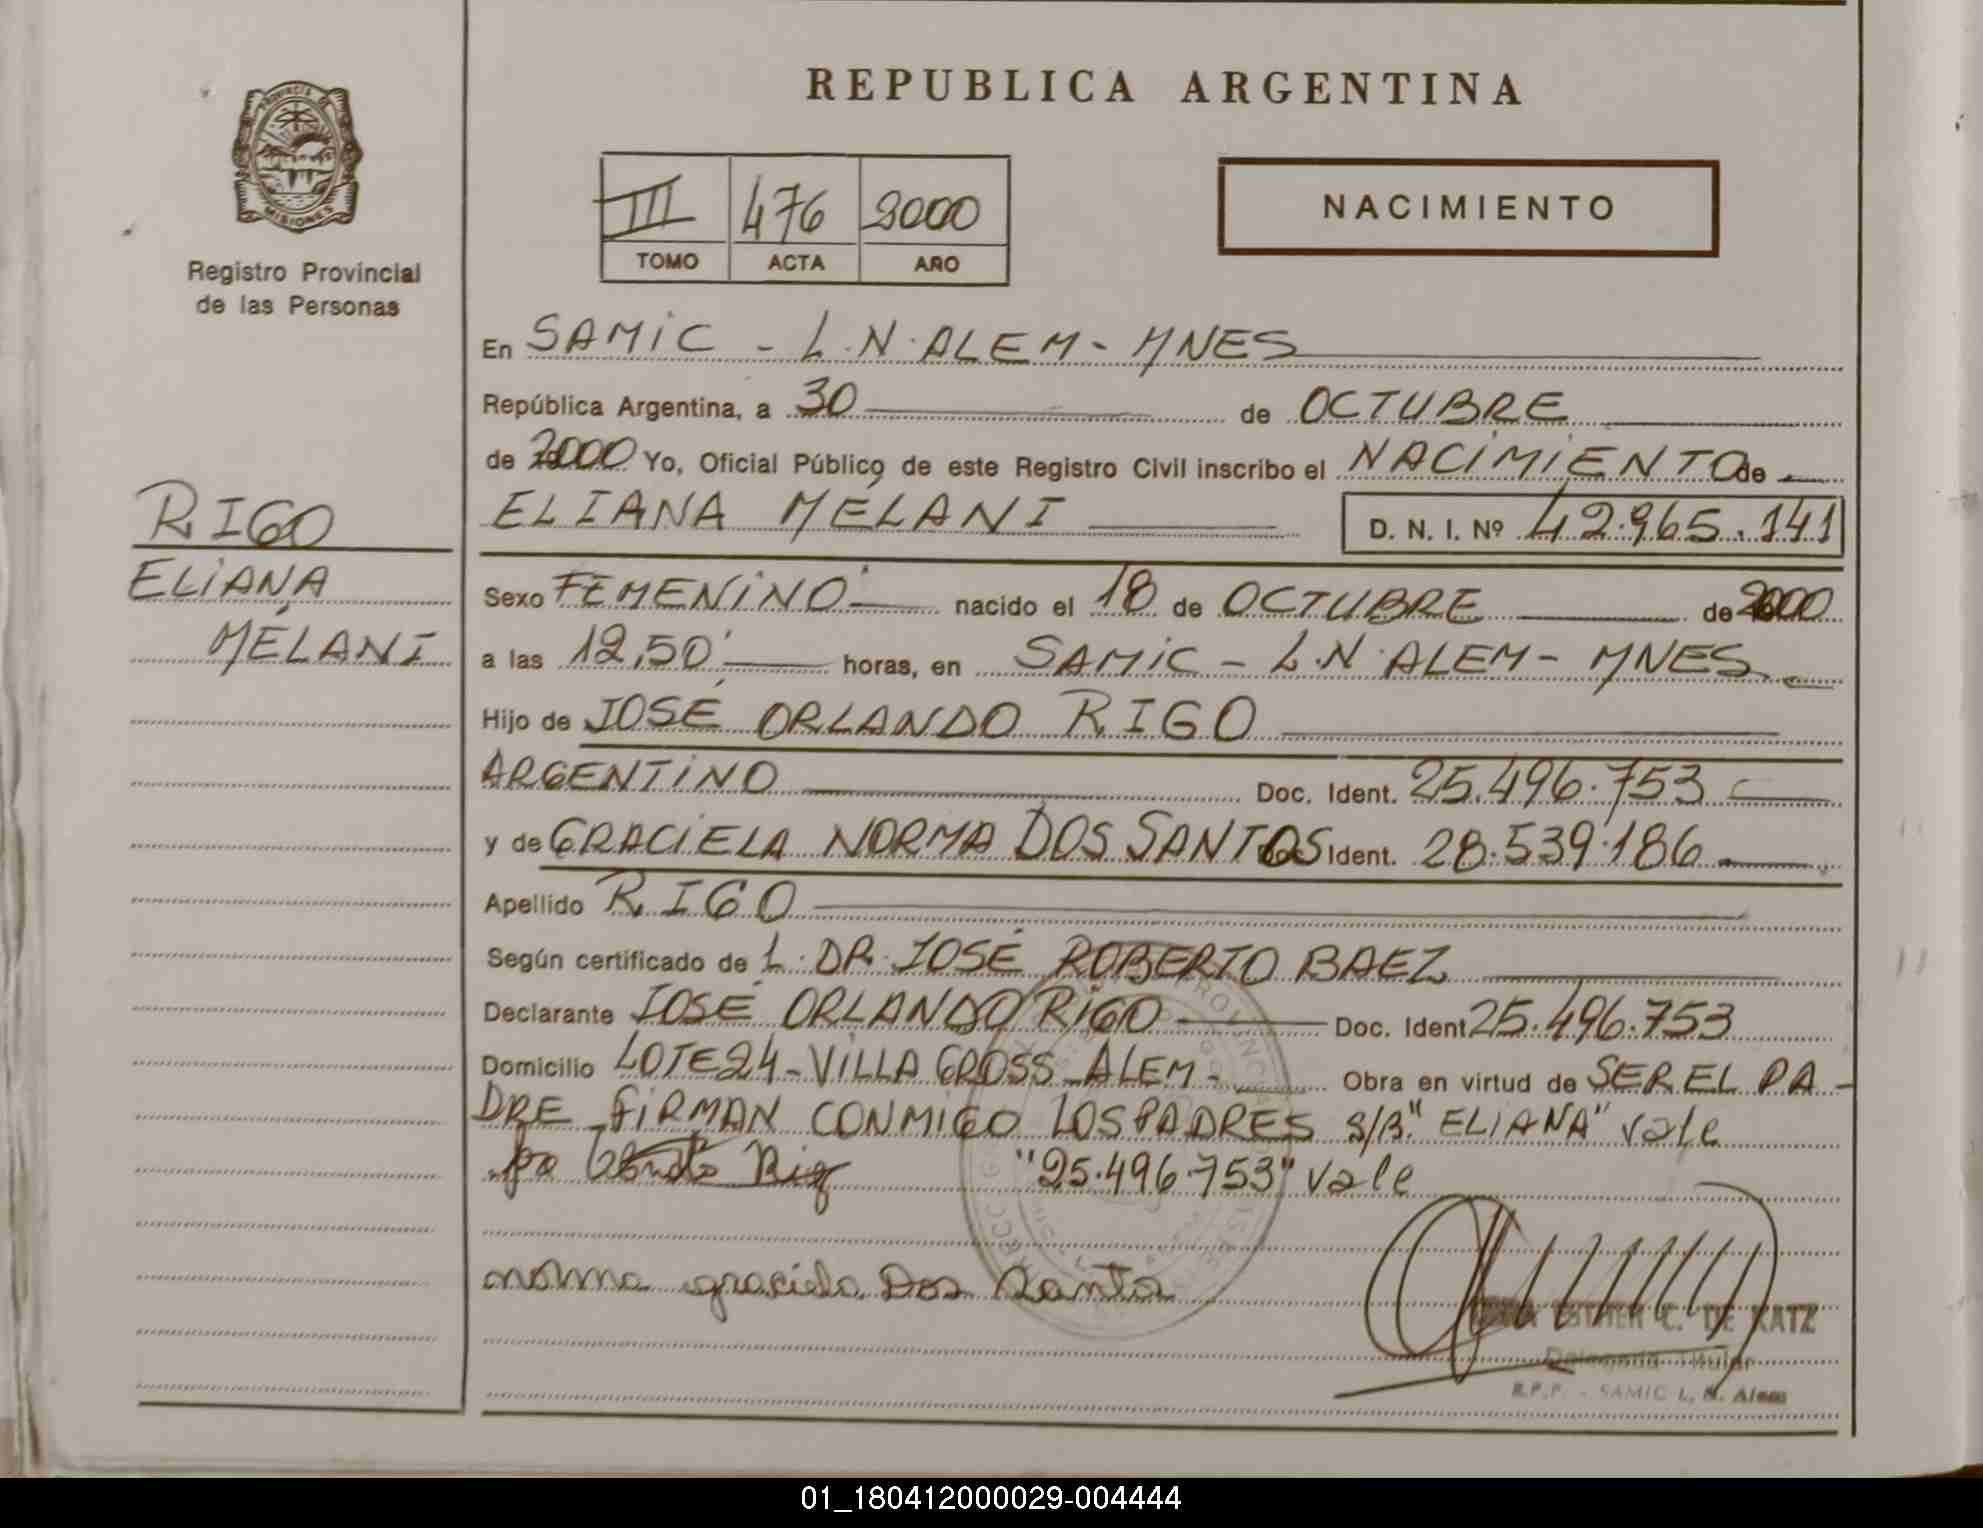 REPUBLICA ARGENTINA
PROVINCIA DE
MISIONES
Registro Provincial
de las Personas
III 476 2000
TOMO ACTA AÑO
NACIMIENTO
En SAMIC - L.N. ALEM - MNES
República Argentina, a 30 de OCTUBRE
de 2000 Yo, Oficial Público de este Registro Civil inscribo el NACIMIENTO de
ELIANA MÉLANI D. N. I. Nº 42.965.141
RIGO
ELIANA
MÉLANI
Sexo FEMENINO nacido el 18 de OCTUBRE de 2000
a las 12,50' horas, en SAMIC - L.N. ALEM - MNES
Hijo de JOSÉ ORLANDO RIGO
ARGENTINO Doc. Ident. 25.496.753
y de GRACIELA NORMA DOS SANTOS Doc. Ident. 28.539.186
Apellido RIGO
Según certificado de L. DR. JOSÉ ROBERTO BAEZ
Declarante JOSÉ ORLANDO RIGO Doc. Ident 25.496.753
Domicilio LOTE 24 - VILLA GROSS - ALEM - Obra en virtud de SER EL PA-
DRE FIRMAN CONMIGO LOS PADRES S/B. "ELIANA" vale
"25.496.753" vale
norma graciela Dos Santos
ESTHER C. DE KATZ
Delegada Titular
R.P.P. - SAMIC L. N. Alem
01_180412000029-004444